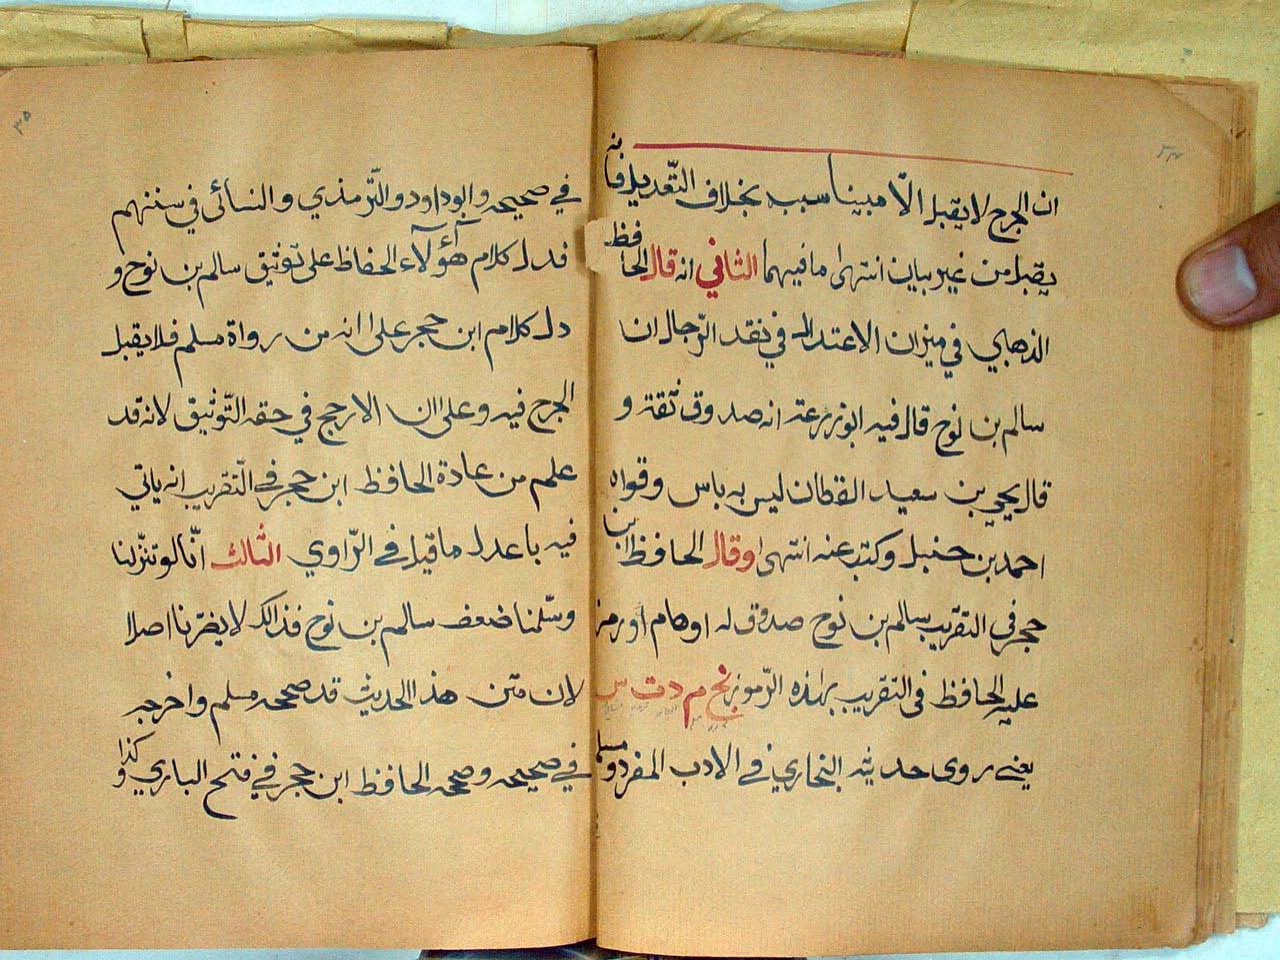 ان الجرح لا يقبل الّا مبينا سببه بخلاف التّعديل فانه
يقبل من غير بيان انتهى ما فيهما الثاني انه قال الحافظ
الذهبي في ميزان الاعتدال في نقد الرّجال ان
سالم بن نوح قال فيه ابو زرعة انه صدوق ثقة و
قال يحيى بن سعيد القطان ليس به باس وقواه
احمد بن حنبل وكتب عنه انتهى وقال الحافظ ابن
حجر في التقريب سالم بن نوح صدوق له اوهام اورمز
عليه الحافظ في التقريب بهذه الرّموز بخ م د ت س
يعني روى حديثه البخاري في الادب المفرد ومسلم
٣٥
في صحيحه وابو داود والتّرمذي والنسائى في سننهم
فدل كلام هؤلآء الحفاظ على توثيق سالم بن نوح و
دل كلام ابن حجر على انه من رواة مسلم فلا يقبل
الجرح فيه وعلى ان الارجح في حقه التّوثيق لانه قد
علم من عادة الحافظ ابن حجر في التّقريب انه ياتي
فيه باعدل ما قيل في الرّاوي الثالث انّا لو تنزّلنا
وسلّمنا ضعف سالم بن نوح فذالك لا يضرّنا اصلا
لان متن هذا الحديث قد صححه مسلم واخرجه
في صحيحه وصححه الحافظ ابن حجر في فتح الباري وكذا